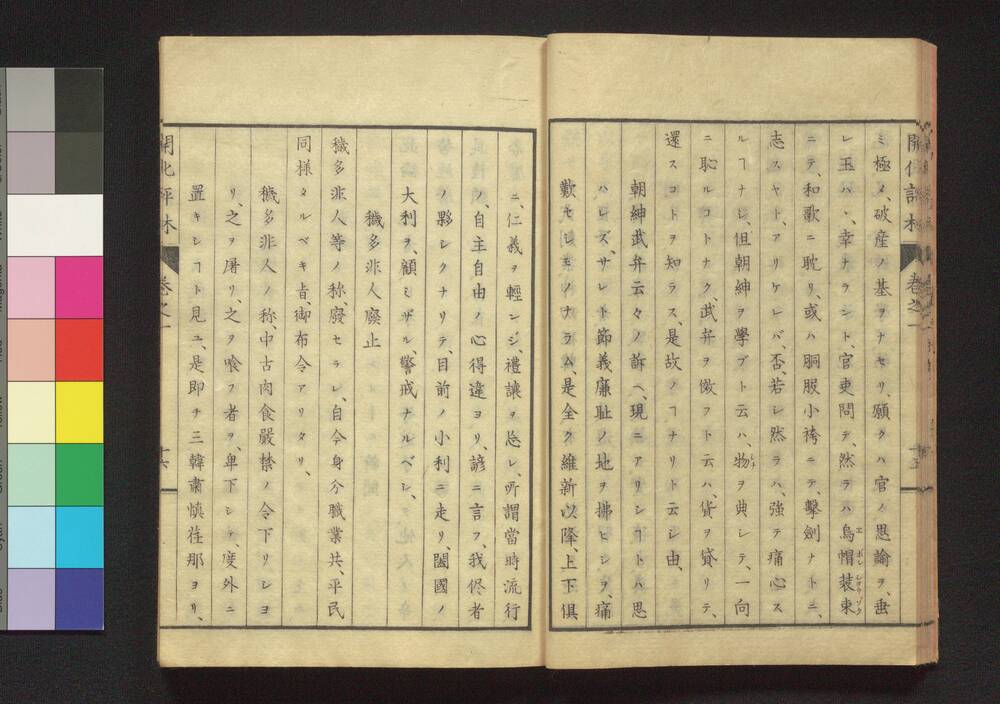 ミ極メ、破産ノ基ヲナセリ、願クハ官ノ恩諭ヲ、垂
レ玉ハヽ、幸ナラント、官吏問テ、然ラハ烏帽装束
ニテ、和歌ニ耽リ、或ハ胴服小袴ニテ、擊劍ナトニ、
志スヤト、アリケレバ、否、若シ然ラハ、強テ痛心ス
ルヿナシ、但朝紳ヲ學ブト云ハ、物ヲ典シテ、一向
ニ恥ルコトナク、武弁ヲ傚フト云ハ、貨ヲ貸リテ、
還スコトヲ知ラス、是故ノヿナリト云シ由、
朝紳武弁云々ノ訴ヘ、現ニアリシヿトハ思
ハレズ、サレト節義廉耻ノ地ヲ拂ヒシヲ、痛
歎セシモノナラム、是全ク維新以降、上下俱
開化評林 卷之一 十五
ニ、仁義ヲ輕ンジ、禮讓ヲ忘レ、所謂當時流行
ノ、自主自由ノ心得違ヨリ、諺ニ言フ、我侭者
ノ夥シクナリテ、目前ノ小利ニ走リ、闔國ノ
大利ヲ、顧ミザル、警戒ナルベシ、
穢多非人廢止
穢多非人等ノ称、廢セラレ、自今身分職業共、平民
同様タルベキ旨、御布令アリタリ、
穢多非人ノ称、中古肉食嚴禁ノ令下リシヨ
リ、之ヲ屠リ、之ヲ喰フ者ヲ、卑下シテ、度外ニ
置キシヿト見ユ、是即チ三韓肅慎荏那ヨリ、
開化評林 卷之一 十六